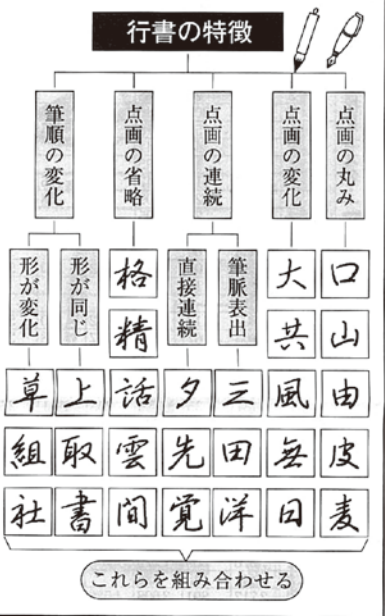 行書の特徴
点画の丸み
点画の変化
点画の連続
点画の省略
筆順の変化
筆脈表出
直接連続
形が同じ
形が変化
口
山
由
皮
麦
大
共
風
無
日
三
田
洋
夕
先
覚
格
精
話
雲
間
上
取
書
草
組
社
これらを組み合わせる